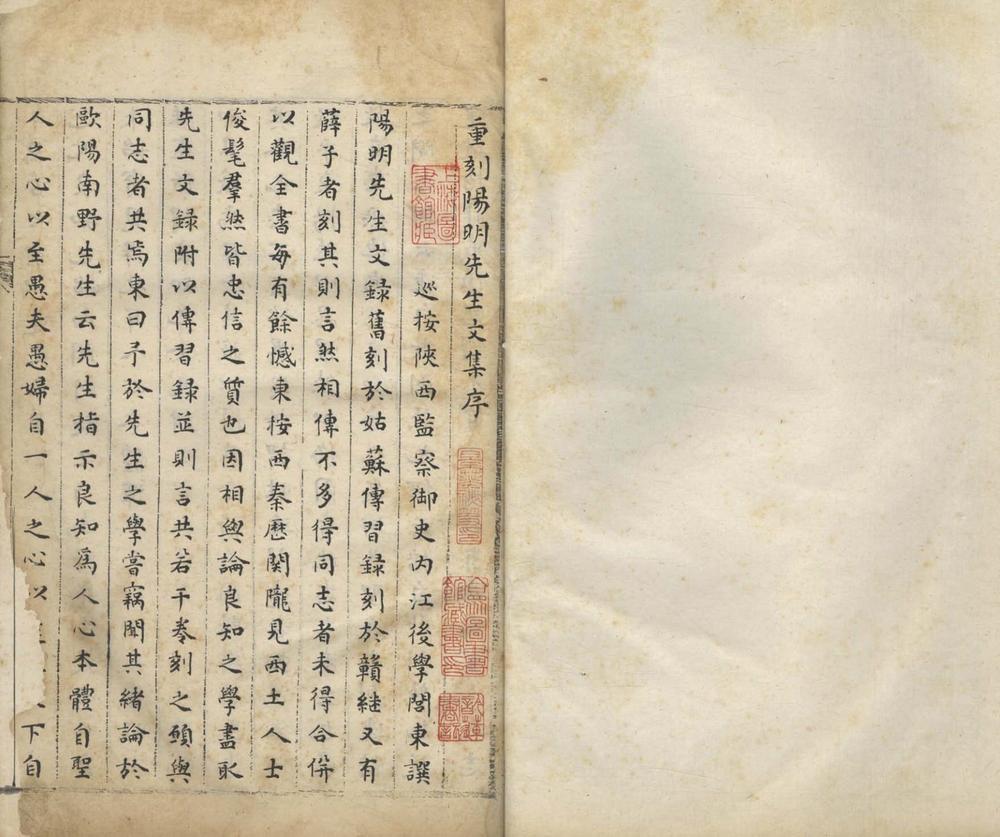 重刻陽明先生文集序
巡按陜西監察御史內江後學閭東譔
陽明先生文錄舊刻於姑蘇傳習錄刻於贛繼又有
薛子者刻其則言然相傳不多得同志者未得合併
以觀全書每有餘憾東按西秦歷関隴見西土人士
俊髦羣然皆忠信之質也因相與論良知之學盡取
先生文錄附以傳習錄並則言共若干卷刻之願與
同志者共焉東曰予於先生之學嘗竊聞其緒論於
歐陽南野先生云先生指示良知為人心本體自聖
人之心以至愚夫愚婦自一人之心以
下自